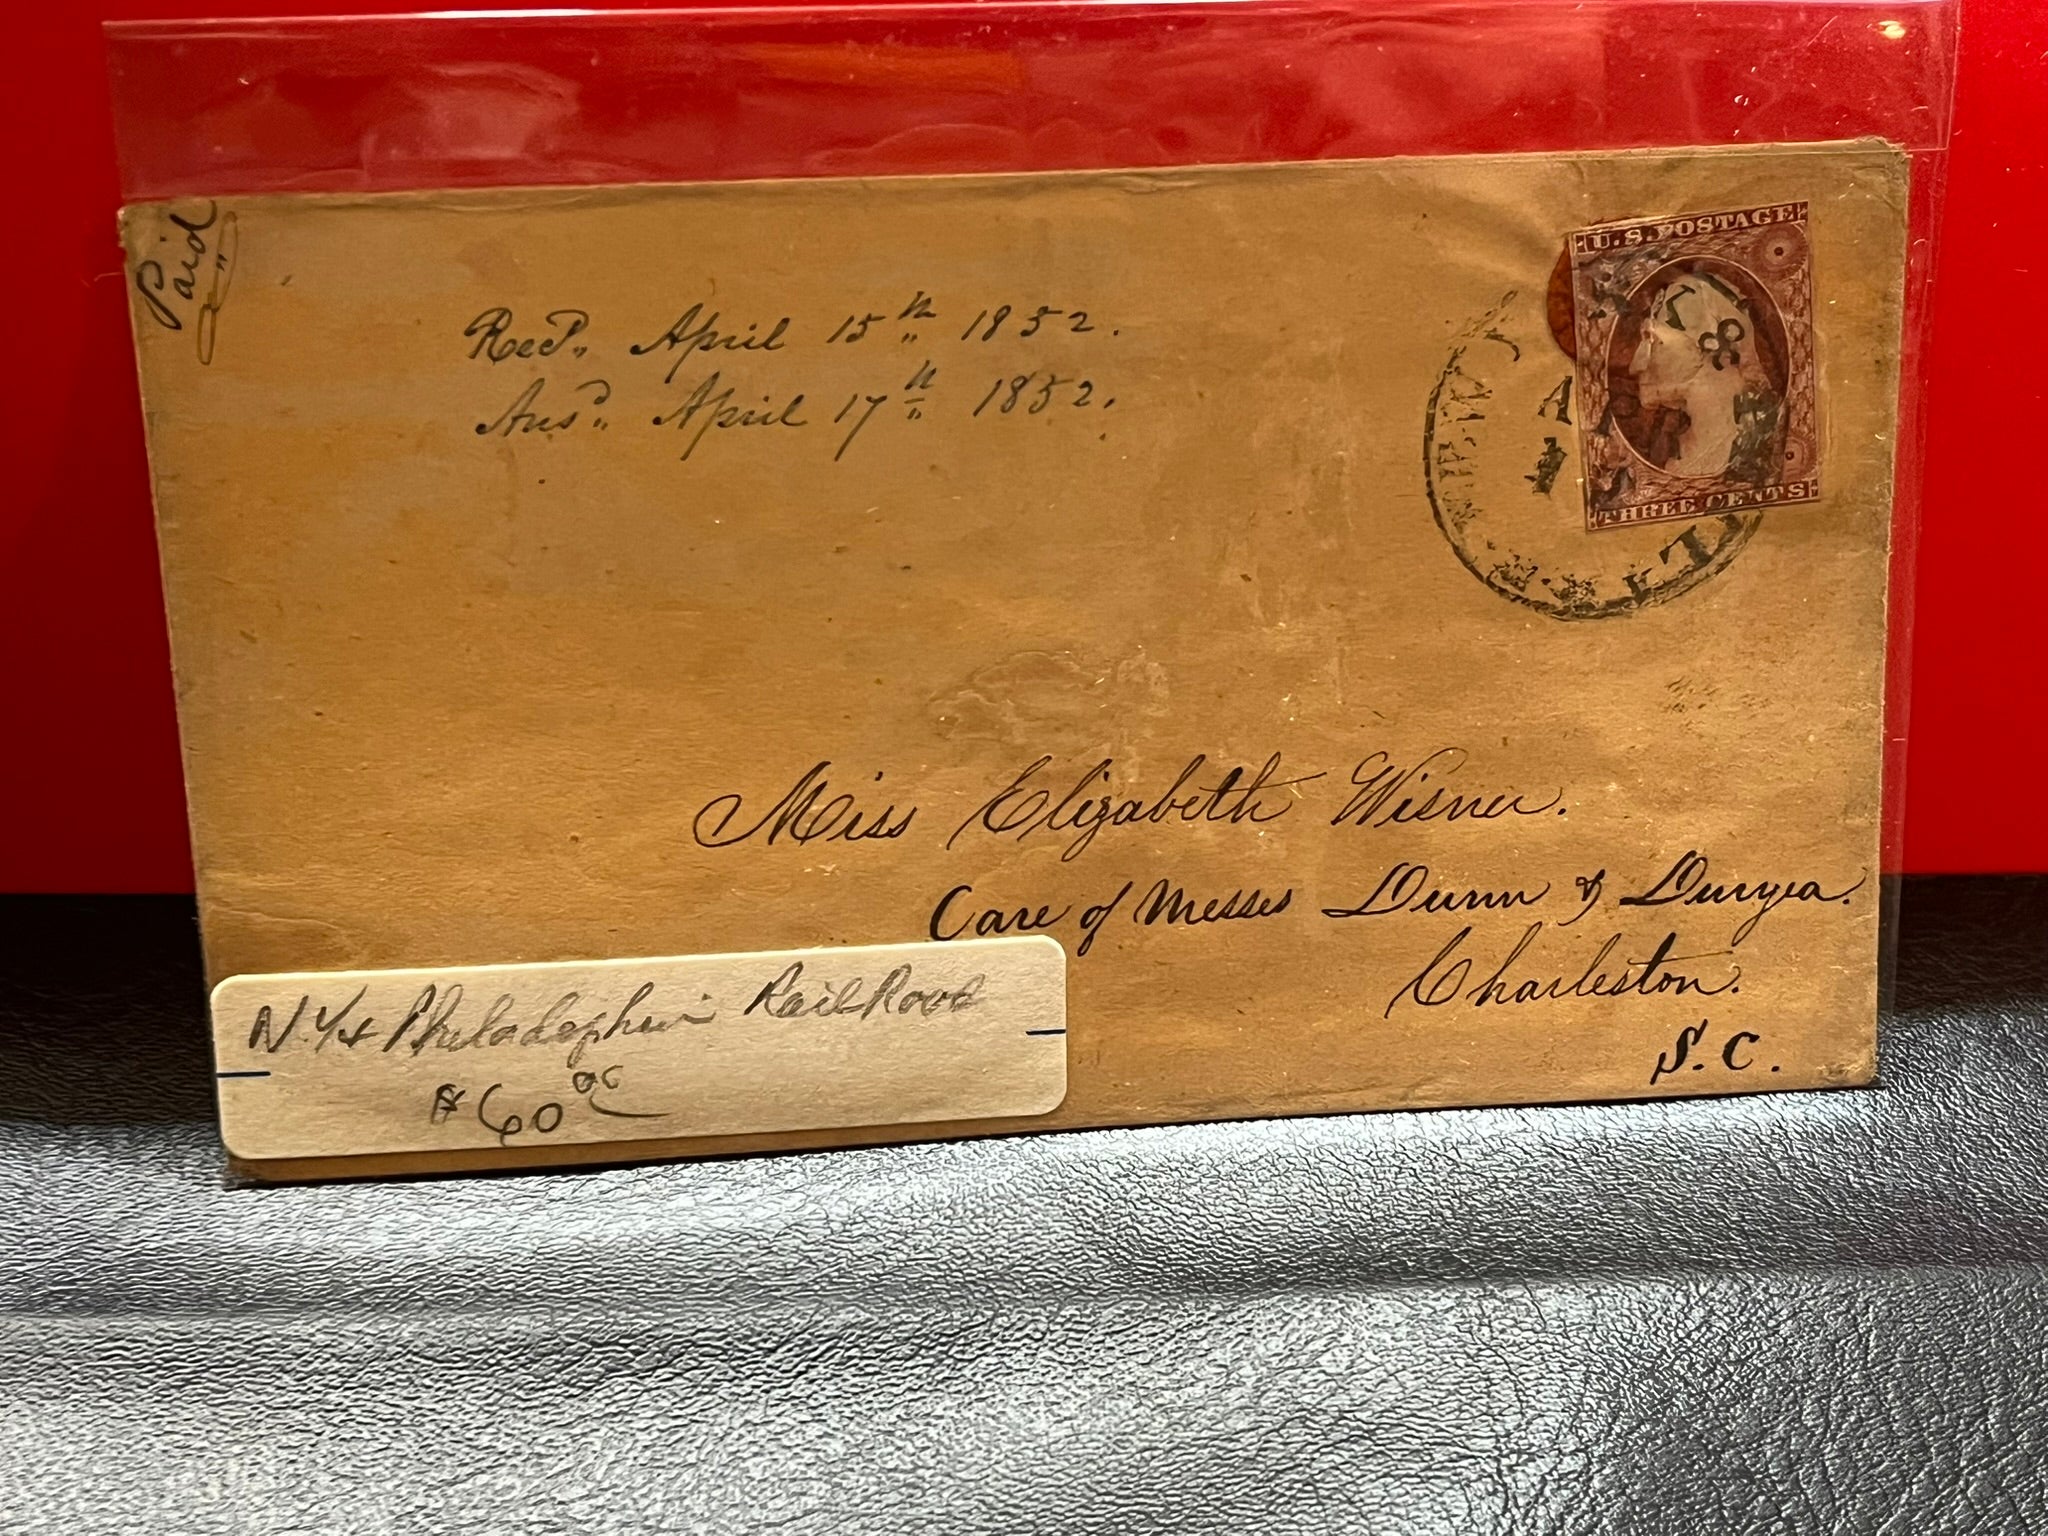 Paid
Recd. April 15th 1852.
Ansd. April 17th 1852.
U.S. POSTAGE
THREE CENTS
NEW
APR
Miss Elizabeth Wisner.
Care of Messes Dunn & Duryea.
Charleston.
S.C.
N.Y. & Philadelphia RailRoad
$60.00